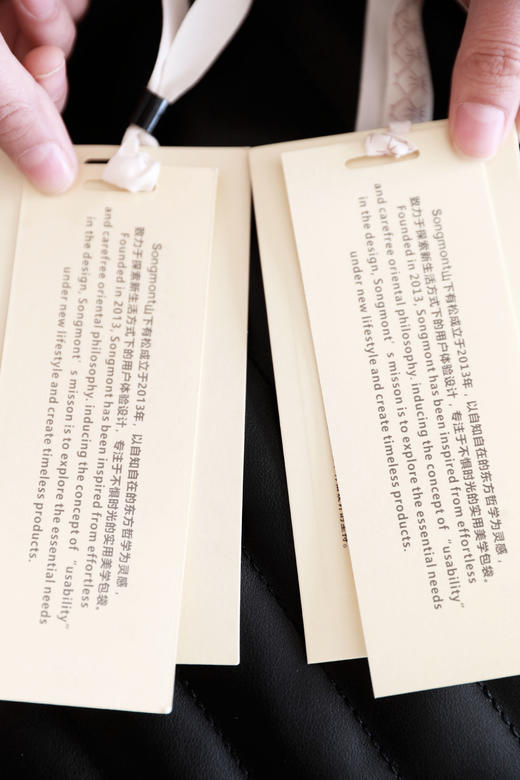 Songmont山下有松成立于2013年，以自知自在的东方哲学为灵感，
致力于探索新生活方式下的用户体验设计，专注于不惧时光的实用美学包袋。
Founded in 2013, Songmont has been inspired from effortless
and carefree oriental philosophy. inducing the concept of “usability”
in the design, Songmont’s misson is to explore the essential needs
under new lifestyle and create timeless products.
Songmont山下有松成立于2013年，以自知自在的东方哲学为灵感，
致力于探索新生活方式下的用户体验设计，专注于不惧时光的实用美学包袋。
Founded in 2013, Songmont has been inspired from effortless
and carefree oriental philosophy. inducing the concept of “usability”
in the design, Songmont’s misson is to explore the essential needs
under new lifestyle and create timeless products.